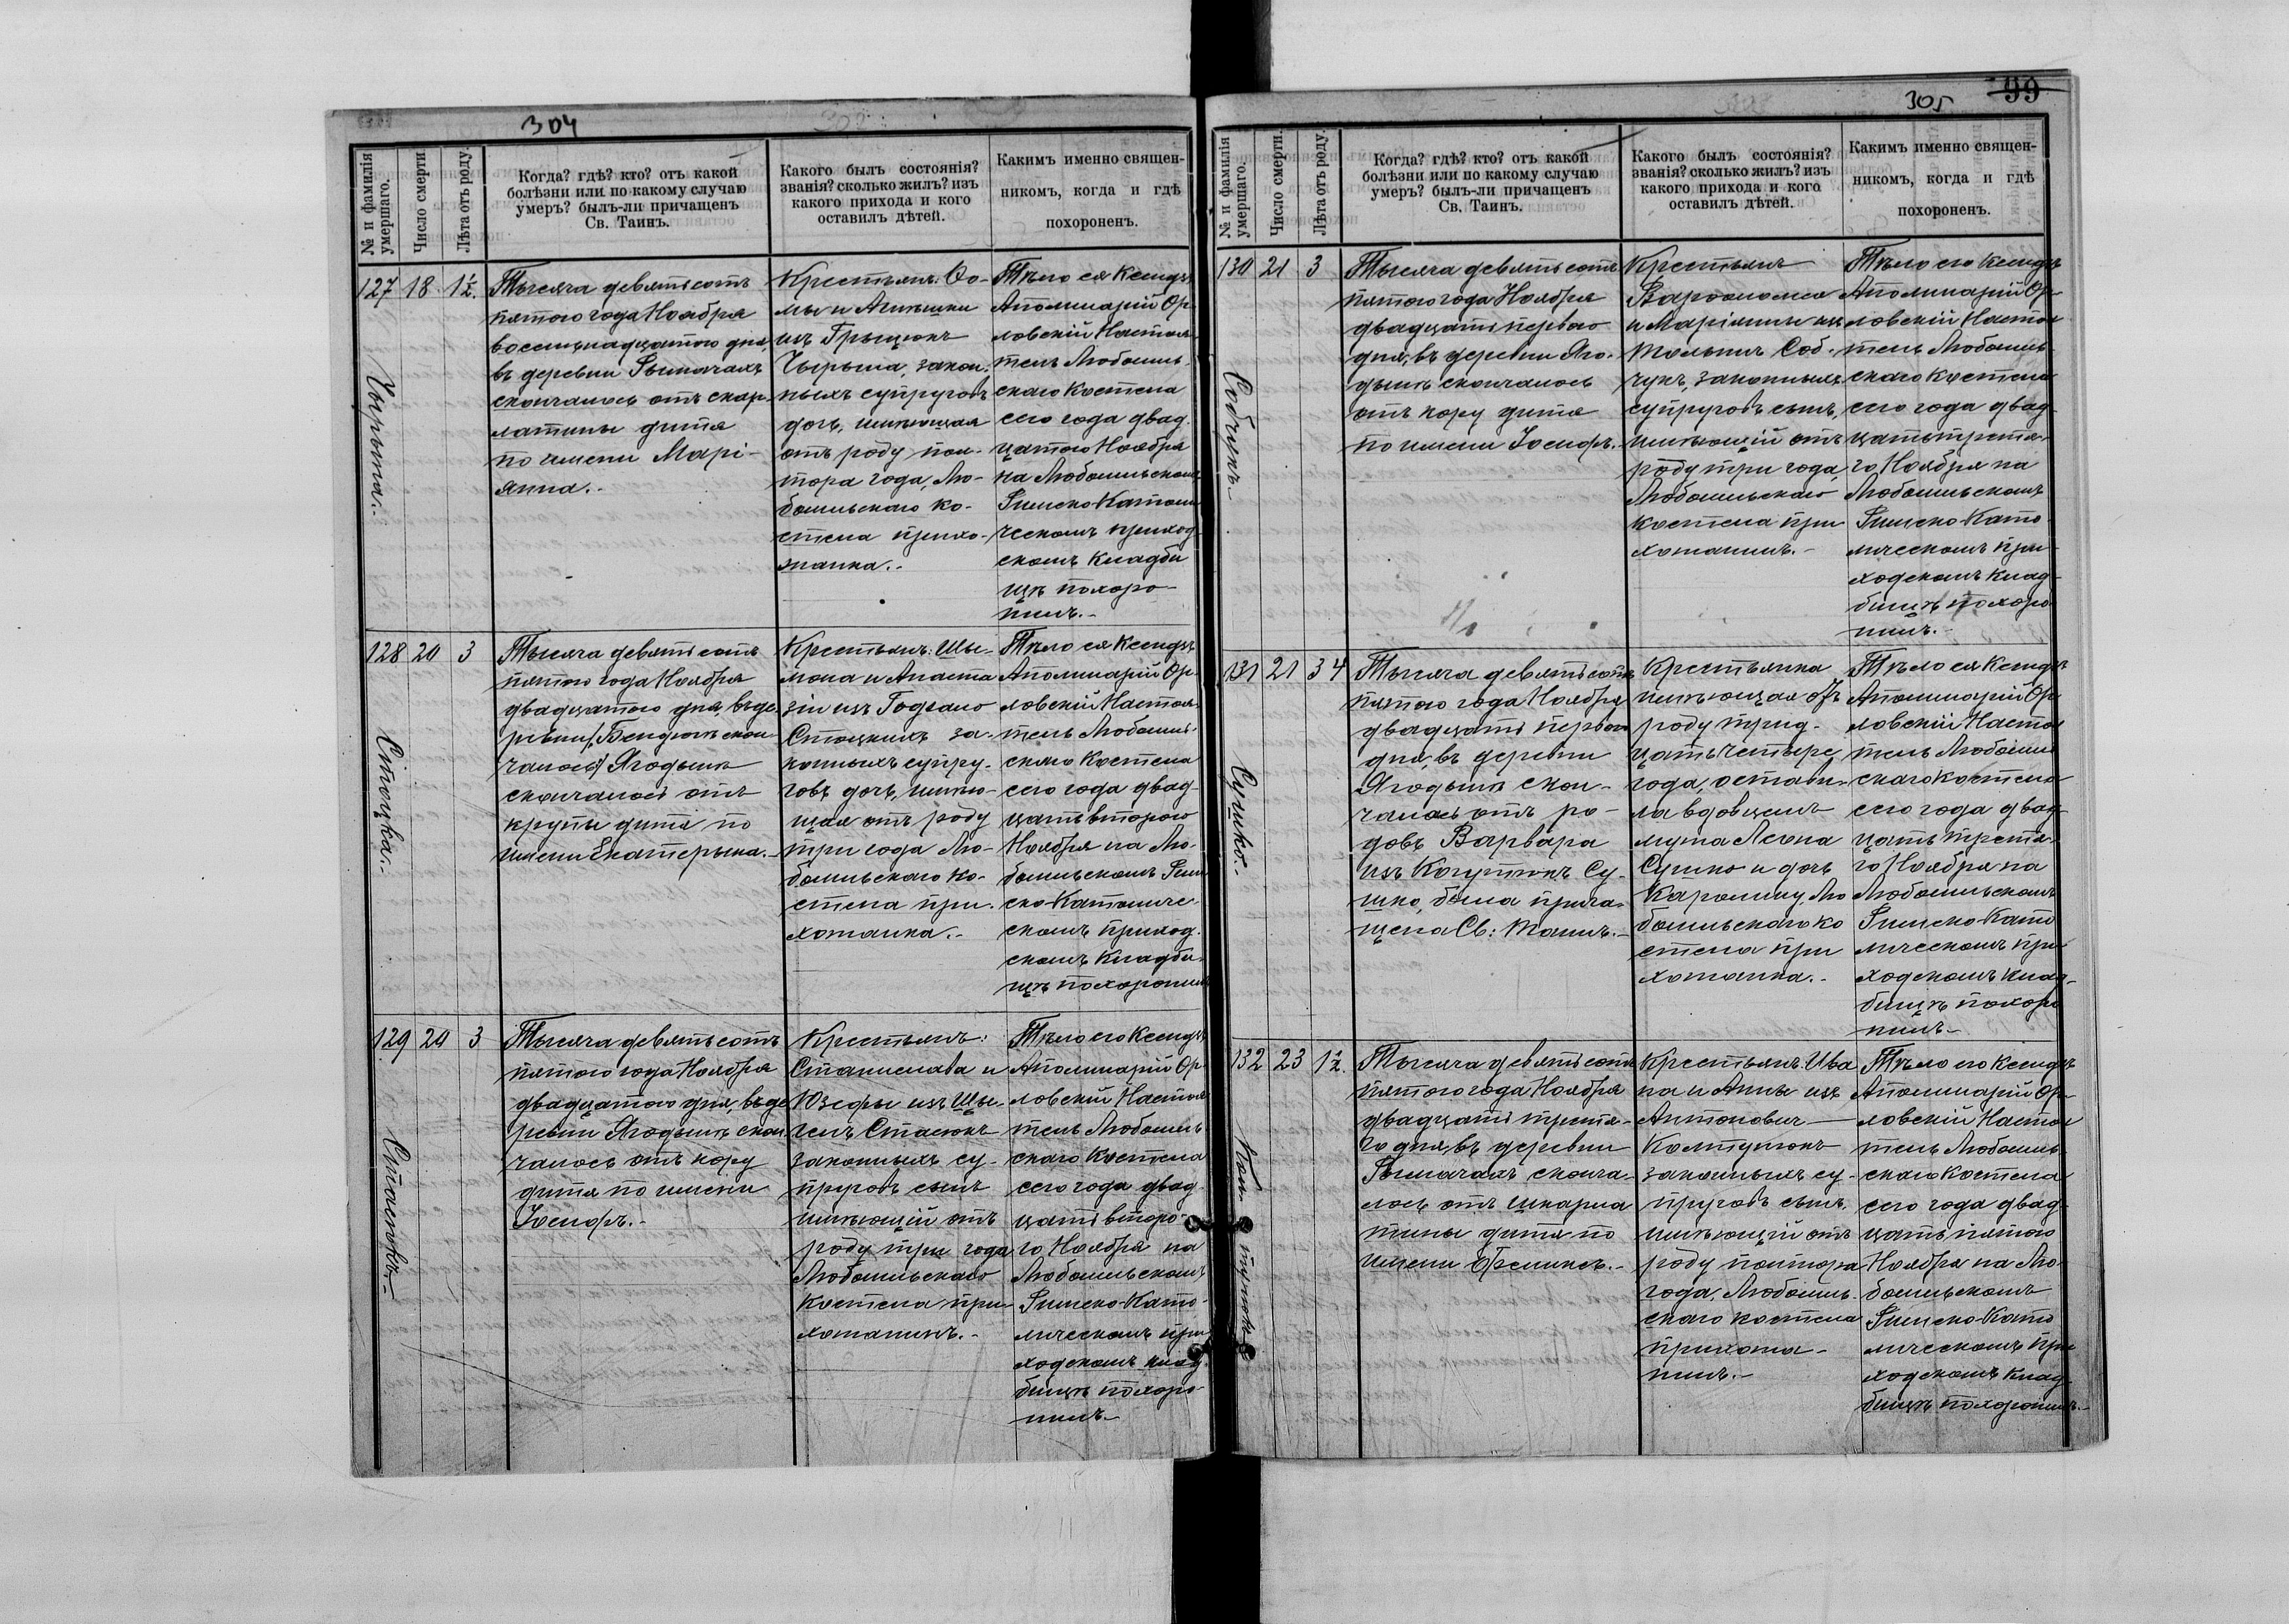 304
№ и фамилія умершаго.
Число смерти.
Лѣта отъ роду.
Когда? гдѣ? кто? отъ какой
болѣзни или по какому случаю
умеръ? былъ-ли причащенъ
Св. Таинъ.
Какого былъ состоянія?
званія? сколько жилъ? изъ
какого прихода и кого
оставилъ дѣтей.
Какимъ именно священ-
никомъ, когда и гдѣ
похороненъ.
127
Чырыма.-
18
1½
Тысяча девятьсотъ
пятого года Ноября
восемнадцатого дня,
въ деревни Рымачахъ
скончалось отъ скар
латины дитя
по имени Марі-
янна.-
Крестьянъ: Ѳо-
мы и Агнѣшки
изъ Грыцюкъ
Чырыма, закон-
ныхъ супруговъ
дочь, имѣющая
отъ роду пол-
тора года, Лю-
бомльскаго ко-
стела прихо-
жанка.-
Тѣло ея Ксендзъ
Аполинарій Ор-
ловскій Настоя-
тель Любомль-
скаго Костела
сего года двад
цатого Ноября
на Любомльскомъ
Римско-Католи
ческомъ приход
скомъ Кладби
щѣ похоро-
нилъ.-
128
Стоцка.-
20
3
Тысяча девятьсотъ
пятого года Ноября
двадцатого дня, въ де
ревни /Бендюгѣ скон
чалось/ Ягодынѣ
скончалось отъ
крупы дитя по
имени Екатерына.-
Крестьянъ: Шы-
мона и Анаста
зіи изъ Годзью
Стоцкихъ за-
конныхъ супру-
говъ дочь, имѣю-
щая отъ роду
три года Лю-
бомльскаго ко-
стела при-
хожанка.-
Тѣло ея Ксендзъ
Аполинарій Ор-
ловскій Настоя-
тель Любомль-
скаго Костела
сего года двад-
цать второго
Ноября на Лю-
бомльскомъ Рим
ско-Католиче-
скомъ приход-
скомъ Кладби-
щѣ похоронилъ
129
Стасюкъ.-
20
3
Тысяча девятьсотъ
пятого года Ноября
двадцатого дня, въ де
ревни Ягодынѣ скон
чалось отъ кору
дитя по имени
Іосифъ.-
Крестьянъ:
Станислава и
Юзефы изъ
Стасюкъ
законныхъ су-
пруговъ сынъ
имѣющій отъ
роду три года
Любомльскаго
костела при-
хожанинъ.-
Тѣло его Ксендзъ
Аполинарій Ор-
ловскій Настоя
тель Любомль
скаго Костела
сего года двад
цать второ-
го Ноября на
Любомльскомъ
Римско-Като-
лическомъ при
ходскомъ клад-
бищѣ похоро-
нилъ.-
305
99
№ и фамилія умершаго.
Число смерти.
Лѣта отъ роду.
Когда? гдѣ? кто? отъ какой
болѣзни или по какому случаю
умеръ? былъ-ли причащенъ
Св. Таинъ.
Какого былъ состоянія?
званія? сколько жилъ? изъ
какого прихода и кого
оставилъ дѣтей.
Какимъ именно священ-
никомъ, когда и гдѣ
похороненъ.
130
Собчукъ.-
21
3
Тысяча девятьсотъ
пятого года Ноября
двадцать первого
дня, въ деревни Яго-
дынѣ скончалось
отъ кору дитя
по имени Іосифъ.-
Крестьянъ
Варфоломея
и Маріянны изъ
Соб-
чукъ, законныхъ
супруговъ сынъ,
имѣющій отъ
роду три года,
Любомльскаго
костела при
хожанинъ.-
Тѣло его Ксендзъ
Аполинарій Ор-
ловскій Настоя
тель Любомль-
скаго Костела
сего года двад
цать третья-
го Ноября на
Любомльскомъ
Римско-Като
лическомъ при-
ходскомъ клад-
бищѣ похоро
нилъ.-
131
Сушко.-
21
34
Тысяча девятьсотъ
пятого года Ноября
двадцать первого
дня, въ деревни
Ягодынѣ скон-
чалась отъ ро-
довъ Варвара
изъ Су-
шко, была прича-
щена Св: Таинъ.-
Крестьянка
имѣющая отъ
роду трид-
цать четыре
года, остави-
ла вдовцемъ
мужа Леона
Сушко и дочь
Каролину, Лю
бомльскаго ко
стела при
хожанка.-
Тѣло ея Ксендзъ
Аполинарій Ор
ловскій Настоя
тель Любомль
скаго костела
сего года двад-
цать третья-
го Ноября на
Любомльскомъ
Римско-Като
лическомъ при-
ходскомъ клад-
бищѣ похоро
нилъ.-
132
23
1½
Тысяча девятьсотъ
пятого года Ноября
двадцать третья-
го дня, въ деревни
Рымачахъ сконча-
лось отъ шкарла
тины дитя по
имени Феликсъ.-
Крестьянъ: Ива
на и Анны изъ
Антонович-
Колтунюкъ
законныхъ су-
пруговъ сынъ.
имѣющій отъ
роду полтора
года, Любомль-
скаго костела
прихожа-
нинъ.-
Тѣло его Ксендзъ
Аполинарій Ор-
ловскій Настоя
тель Любомль-
скаго костела
сего года двад-
цать пятого
Ноября на Лю
бомльскомъ
Римско-Като
лическомъ при
ходскомъ клад-
бищѣ похоронилъ.-